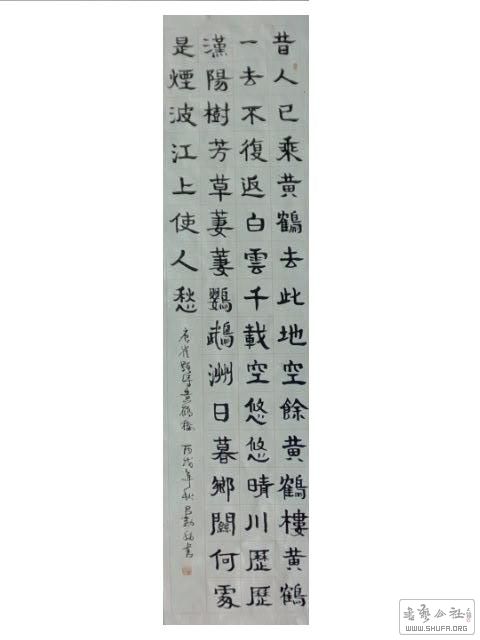 昔人已乘黄鶴去此地空餘黄鶴樓黄鶴
一去不復返白雲千載空悠悠晴川歷歷
漢陽樹芳草萋萋鸚鵡洲日暮鄉關何處
是煙波江上使人愁
唐崔顥詩黄鶴樓 丙戌年秋 書
书艺公社
WWW.SHUFA.ORG